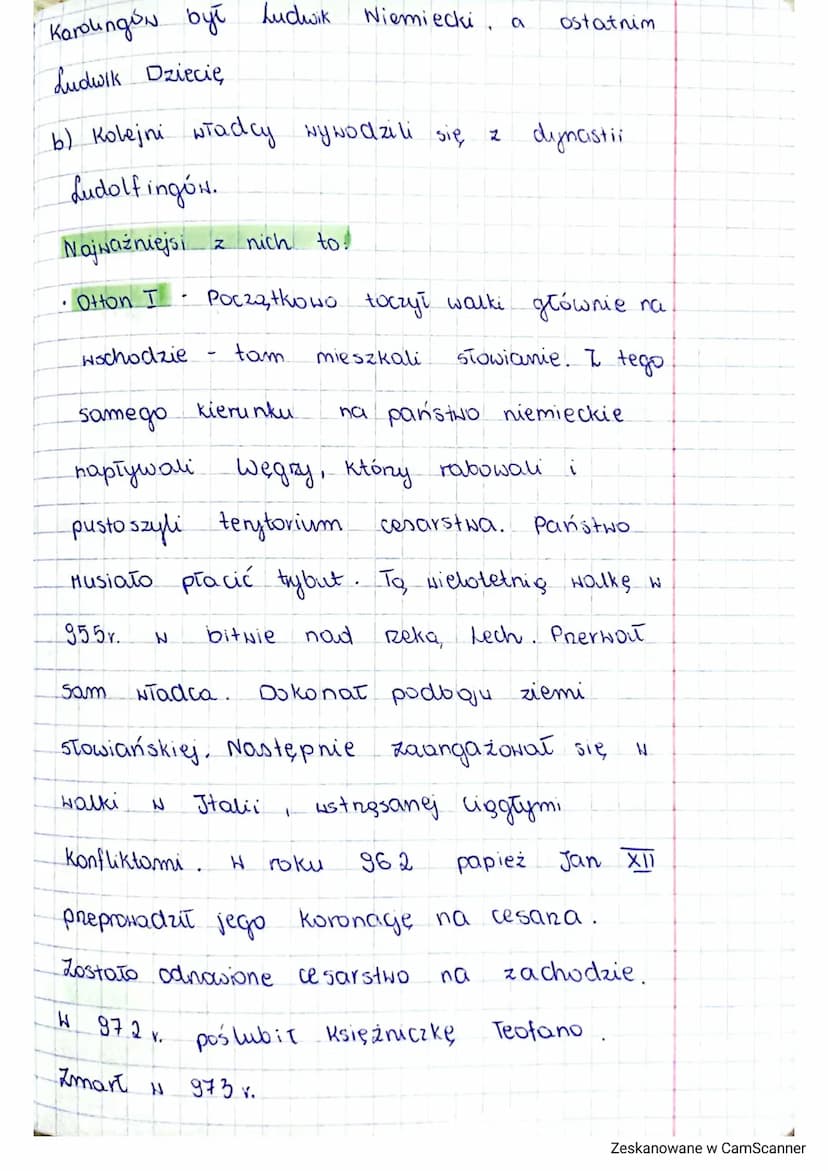 Karolingów był Ludwik Niemiecki, a ostatnim
Ludwik Dziecię
b) Kolejni władcy wywodzili się z dynastii
Ludolfingów.
Najważniejsi z nich to:
· Otton I - Początkowo toczył walki głównie na
wschodzie - tam mieszkali słowianie. Z tego
samego kierunku na państwo niemieckie
napływali Węgrzy, którzy rabowali i
pustoszyli terytorium cesarstwa. Państwo
musiało płacić trybut. Tą wieloletnią walkę w
955r. w bitwie nad rzeką Lech. Przerwał
sam władca. Dokonał podboju ziemi
słowiańskiej. Następnie zaangażował się w
walki w Italii, wstrząsanej ciągłymi
konfliktami. W roku 962 papież Jan XII
przeprowadził jego koronację na cesarza.
Zostało odnowione cesarstwo na zachodzie.
W 972 r. poślubił księżniczkę Teofano.
Zmarł w 973 r.
Zeskanowane w CamScanner